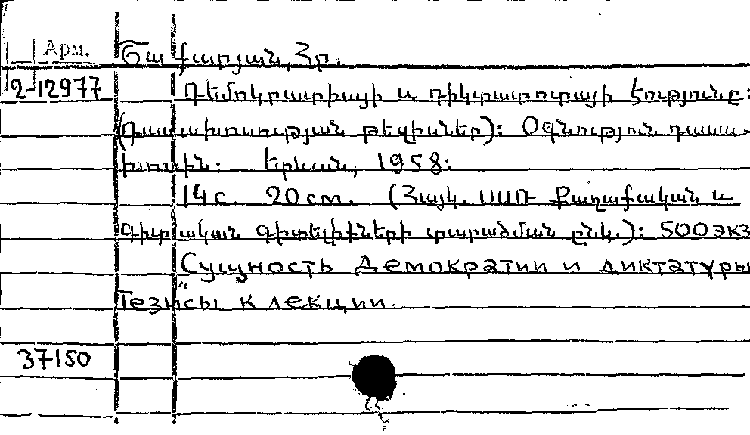 Арм.
Ծաֆարյան, Հր.
2-12977
Դեմոկրատիայի և դիկտատուրայի էությունը:
(Դասախոսության թեզիսներ): Օգնություն դասա-
խոսին: Երևան, 1958:
14 с. 20 cm. (Հայկ. ՍՍՌ Քաղաքական և
Գիտական Գիտելիքների տարածման ընկ.): 500 экз
Сущность демократии и диктатуры
Тезисы к лекции.
37150